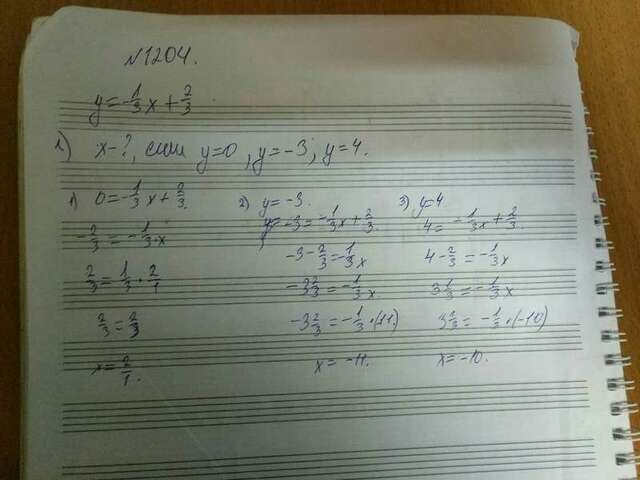 №1204.
y = -1/3 x + 2/3
x - ?, если y=0, y=-3, y=4.
1) 0 = -1/3 x + 2/3.
-2/3 = -1/3 · x
2/3 = 1/3 · 2/1
2/3 = 2/3
x = 2/1.
2) y = -3.
-3 = -1/3 x + 2/3.
-3 - 2/3 = -1/3 x
-3 2/3 = -1/3 x.
-3 2/3 = -1/3 · (11)
x = -11.
3) y=4
4 = -1/3 x + 2/3.
4 - 2/3 = -1/3 x
3 1/3 = -1/3 x
3 1/3 = -1/3 · (-10)
x = -10.